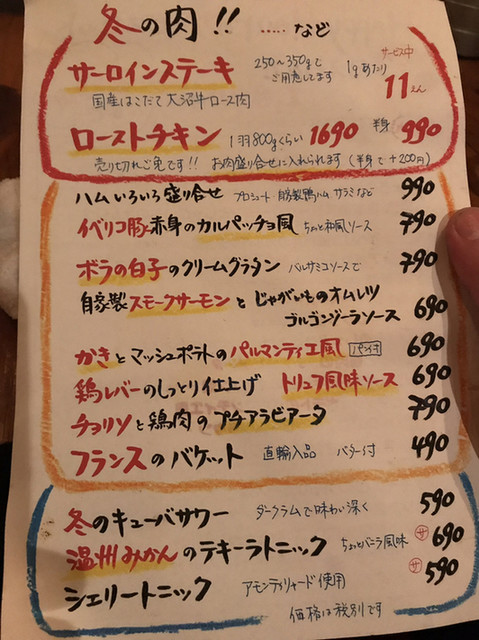 冬の肉!! ..... など
サーロインステーキ 250〜350gでご用意してます 1gあたり サービス中 11えん
国産はこだて大沼牛ロース肉
ローストチキン 1羽800gくらい 1690 半身 990
売り切れご免です!! お肉盛り合せに入れられます(半身で+200円)
ハムいろいろ盛り合せ プロシュート 自家製鴨ハム サラミなど 990
イベリコ豚と赤身のカルパッチョ風 ちょっと和風ソース 790
ボラの白子のクリームグラタン バルサミコソースで 790
自家製スモークサーモンとじゃがいものオムレツ
ゴルゴンゾーラソース 690
かきとマッシュポテトのパルマンティエ風 パン付 690
鶏レバーのしっとり仕上げ トリュフ風味ソース 690
チョリソと鶏肉のプチアラビアータ 790
フランスのバケット 直輸入品 バター付 490
冬のキューバサワー ダークラムで味わい深く 590
温州みかんのテキーラトニック ちょっとバニラ風味 サ 690
シェリートニック アモンティリャード使用 サ 590
価格は税別です